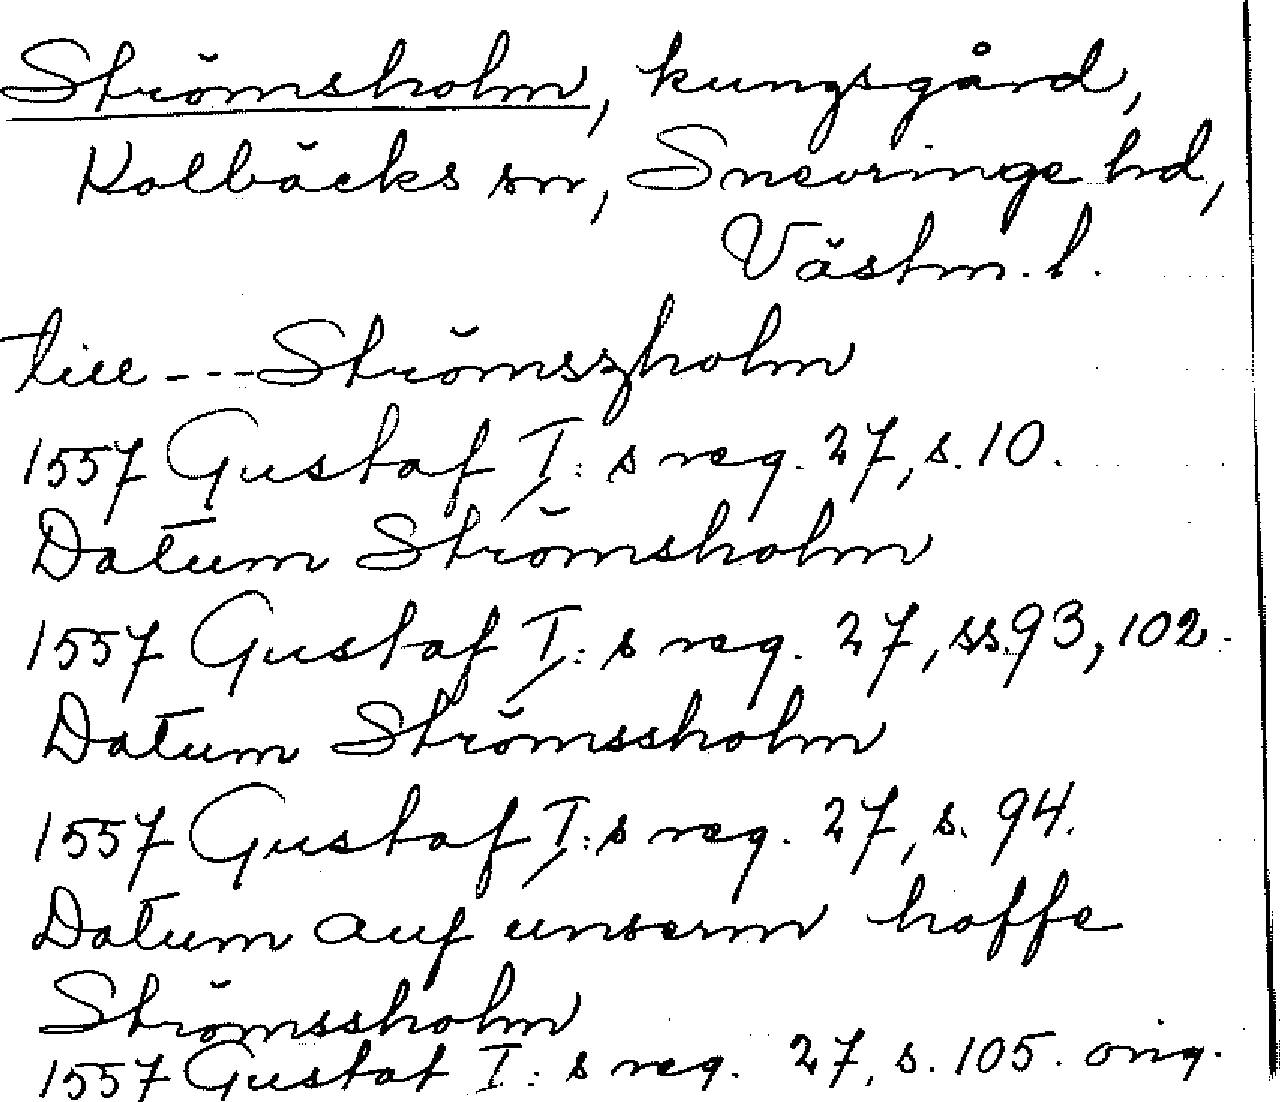 Strömsholm, kungsgård,
Kolbäcks sn, Snevringe hd,
Västm. l.
till --- Strömszholm
1557 Gustaf I: s reg. 27, s. 10.
Datum Strömsholm
1557 Gustaf I: s reg. 27, ss. 93, 102.
Datum Strömssholm
1557 Gustaf I: s reg. 27, s. 94.
Datum auf unserm hoffe
Strömssholm
1557 Gustaf I: s reg. 27, s. 105. orig.